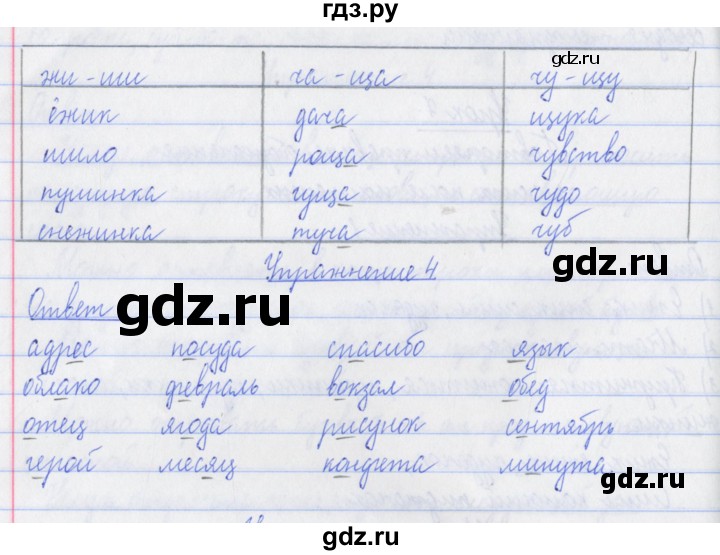 гдз.ру
gdz.ru
жи - ши ча - ща чу - щу
ёжик дача щука
шило роща чувство
пушинка гуща чудо
снежинка туча чуб
gdz.ru
Упражнение 4.
Ответ
gdz.ru
адрес посуда спасибо язык
облако февраль вокзал обед
отец ягода рисунок сентябрь
герой месяц конфета минута
gdz.ru
gdz.ru